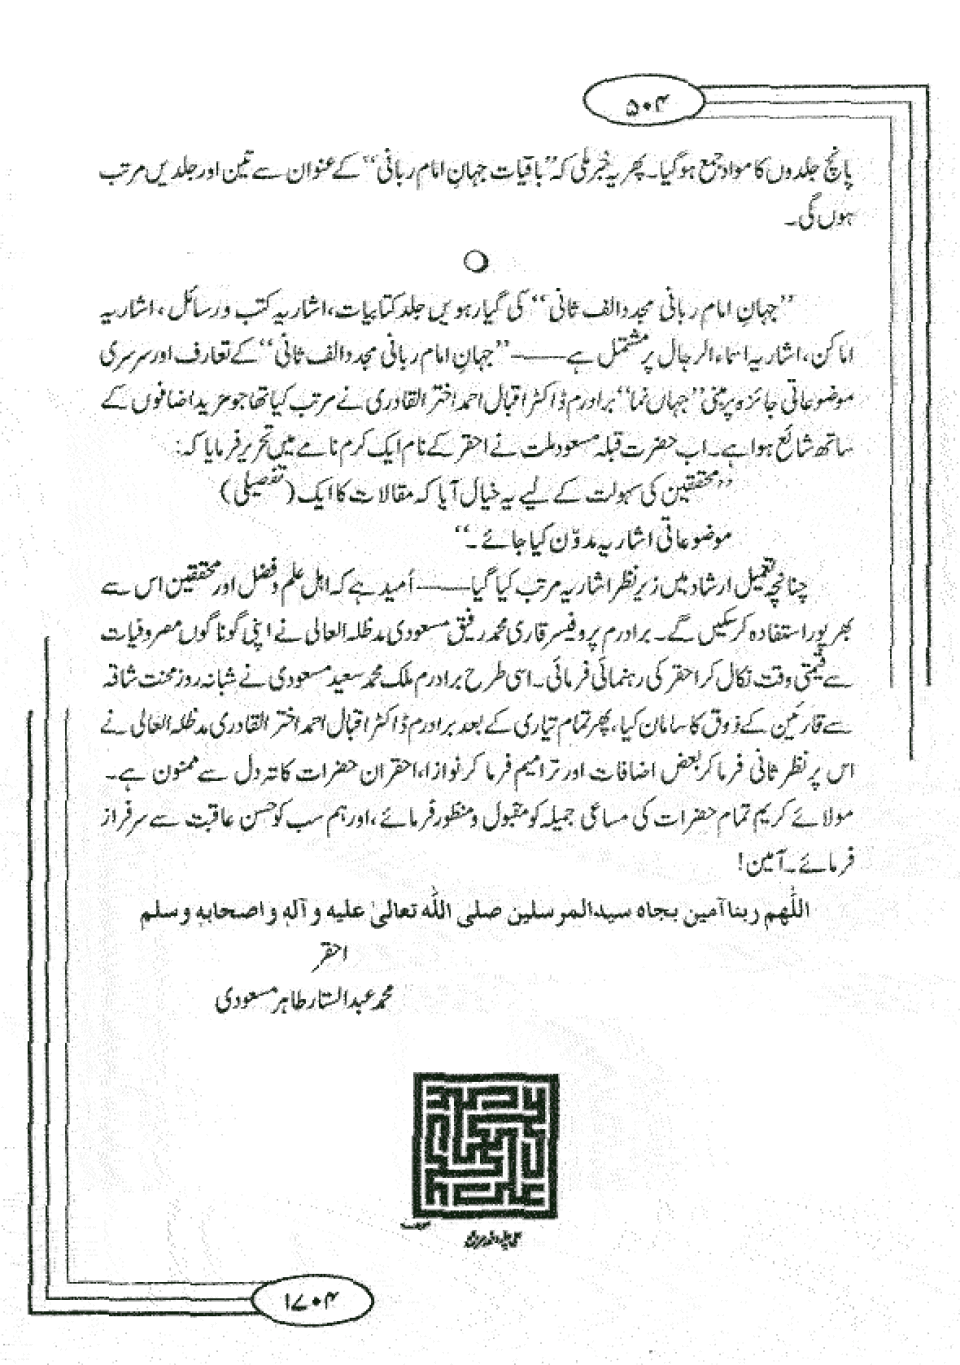 ۵۰۴
پانچ جلدوں کا مواد جمع ہوگیا۔ پھر یہ خبر ملی کہ ”باقیات جہانِ امام ربانی“ کے عنوان سے تین اور جلدیں مرتب
ہوں گی۔
”جہانِ امام ربانی مجدد الف ثانی“ کی گیارہویں جلد کتابیات، اشاریہ کتب و رسائل، اشاریہ
اماکن، اشاریہ اسماء الرجال پر مشتمل ہے —— ”جہانِ امام ربانی مجدد الف ثانی“ کے تعارف اور سرسری
موضوعاتی جائزہ پر مبنی ”جہاں نما“ برادرم ڈاکٹر اقبال احمد اختر القادری نے مرتب کیا تھا جو مزید اضافوں کے
ساتھ شائع ہوا ہے۔ اب حضرت قبلہ مسعود ملت نے احقر کے نام ایک کرم نامے میں تحریر فرمایا کہ:
”محققین کی سہولت کے لیے یہ خیال آیا کہ مقالات کا ایک (تفصیلی)
موضوعاتی اشاریہ مدوّن کیا جائے۔“
چنانچہ تعمیل ارشاد میں زیرِ نظر اشاریہ مرتب کیا گیا —— اُمید ہے کہ اہل علم و فضل اور محققین اس سے
بھرپور استفادہ کرسکیں گے۔ برادرم پروفیسر قاری محمد رفیق مسعودی مدظلہ العالی نے اپنی گوناگوں مصروفیات
سے قیمتی وقت نکال کر احقر کی رہنمائی فرمائی۔ اسی طرح برادرم ملک محمد سعید مسعودی نے شبانہ روز محنت شاقہ
سے قارئین کے ذوق کا سامان کیا، پھر تمام تیاری کے بعد برادرم ڈاکٹر اقبال احمد اختر القادری مدظلہ العالی نے
اس پر نظر ثانی فرما کر بعض اضافات اور ترامیم فرما کر نوازا، احقر ان حضرات کا تہ دل سے ممنون ہے۔
مولائے کریم تمام حضرات کی مساعی جمیلہ کو مقبول و منظور فرمائے، اور ہم سب کو حسن عاقبت سے سرفراز
فرمائے۔ آمین!
اللّٰھم ربنا آمین بجاہ سیدالمرسلین صلی اللّٰہ تعالیٰ علیہ و آلہٖ و اصحابہٖ وسلم
احقر
محمد عبدالستار طاہر مسعودی
۱۷۰۴